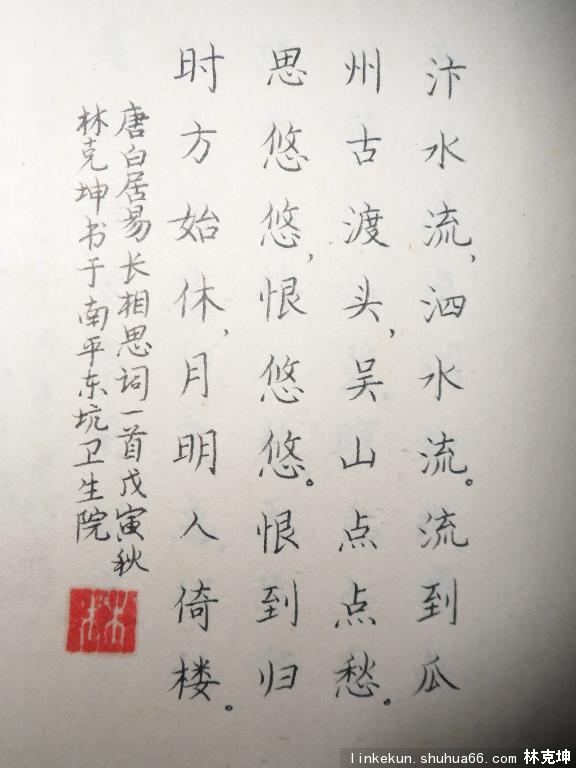 汴水流，泗水流。流到瓜
州古渡头，吴山点点愁。
思悠悠，恨悠悠。恨到归
时方始休，月明人倚楼。
唐白居易长相思词一首戊寅秋
林克坤书于南平东坑卫生院
林
linkekun.shuhua66.com 林克坤